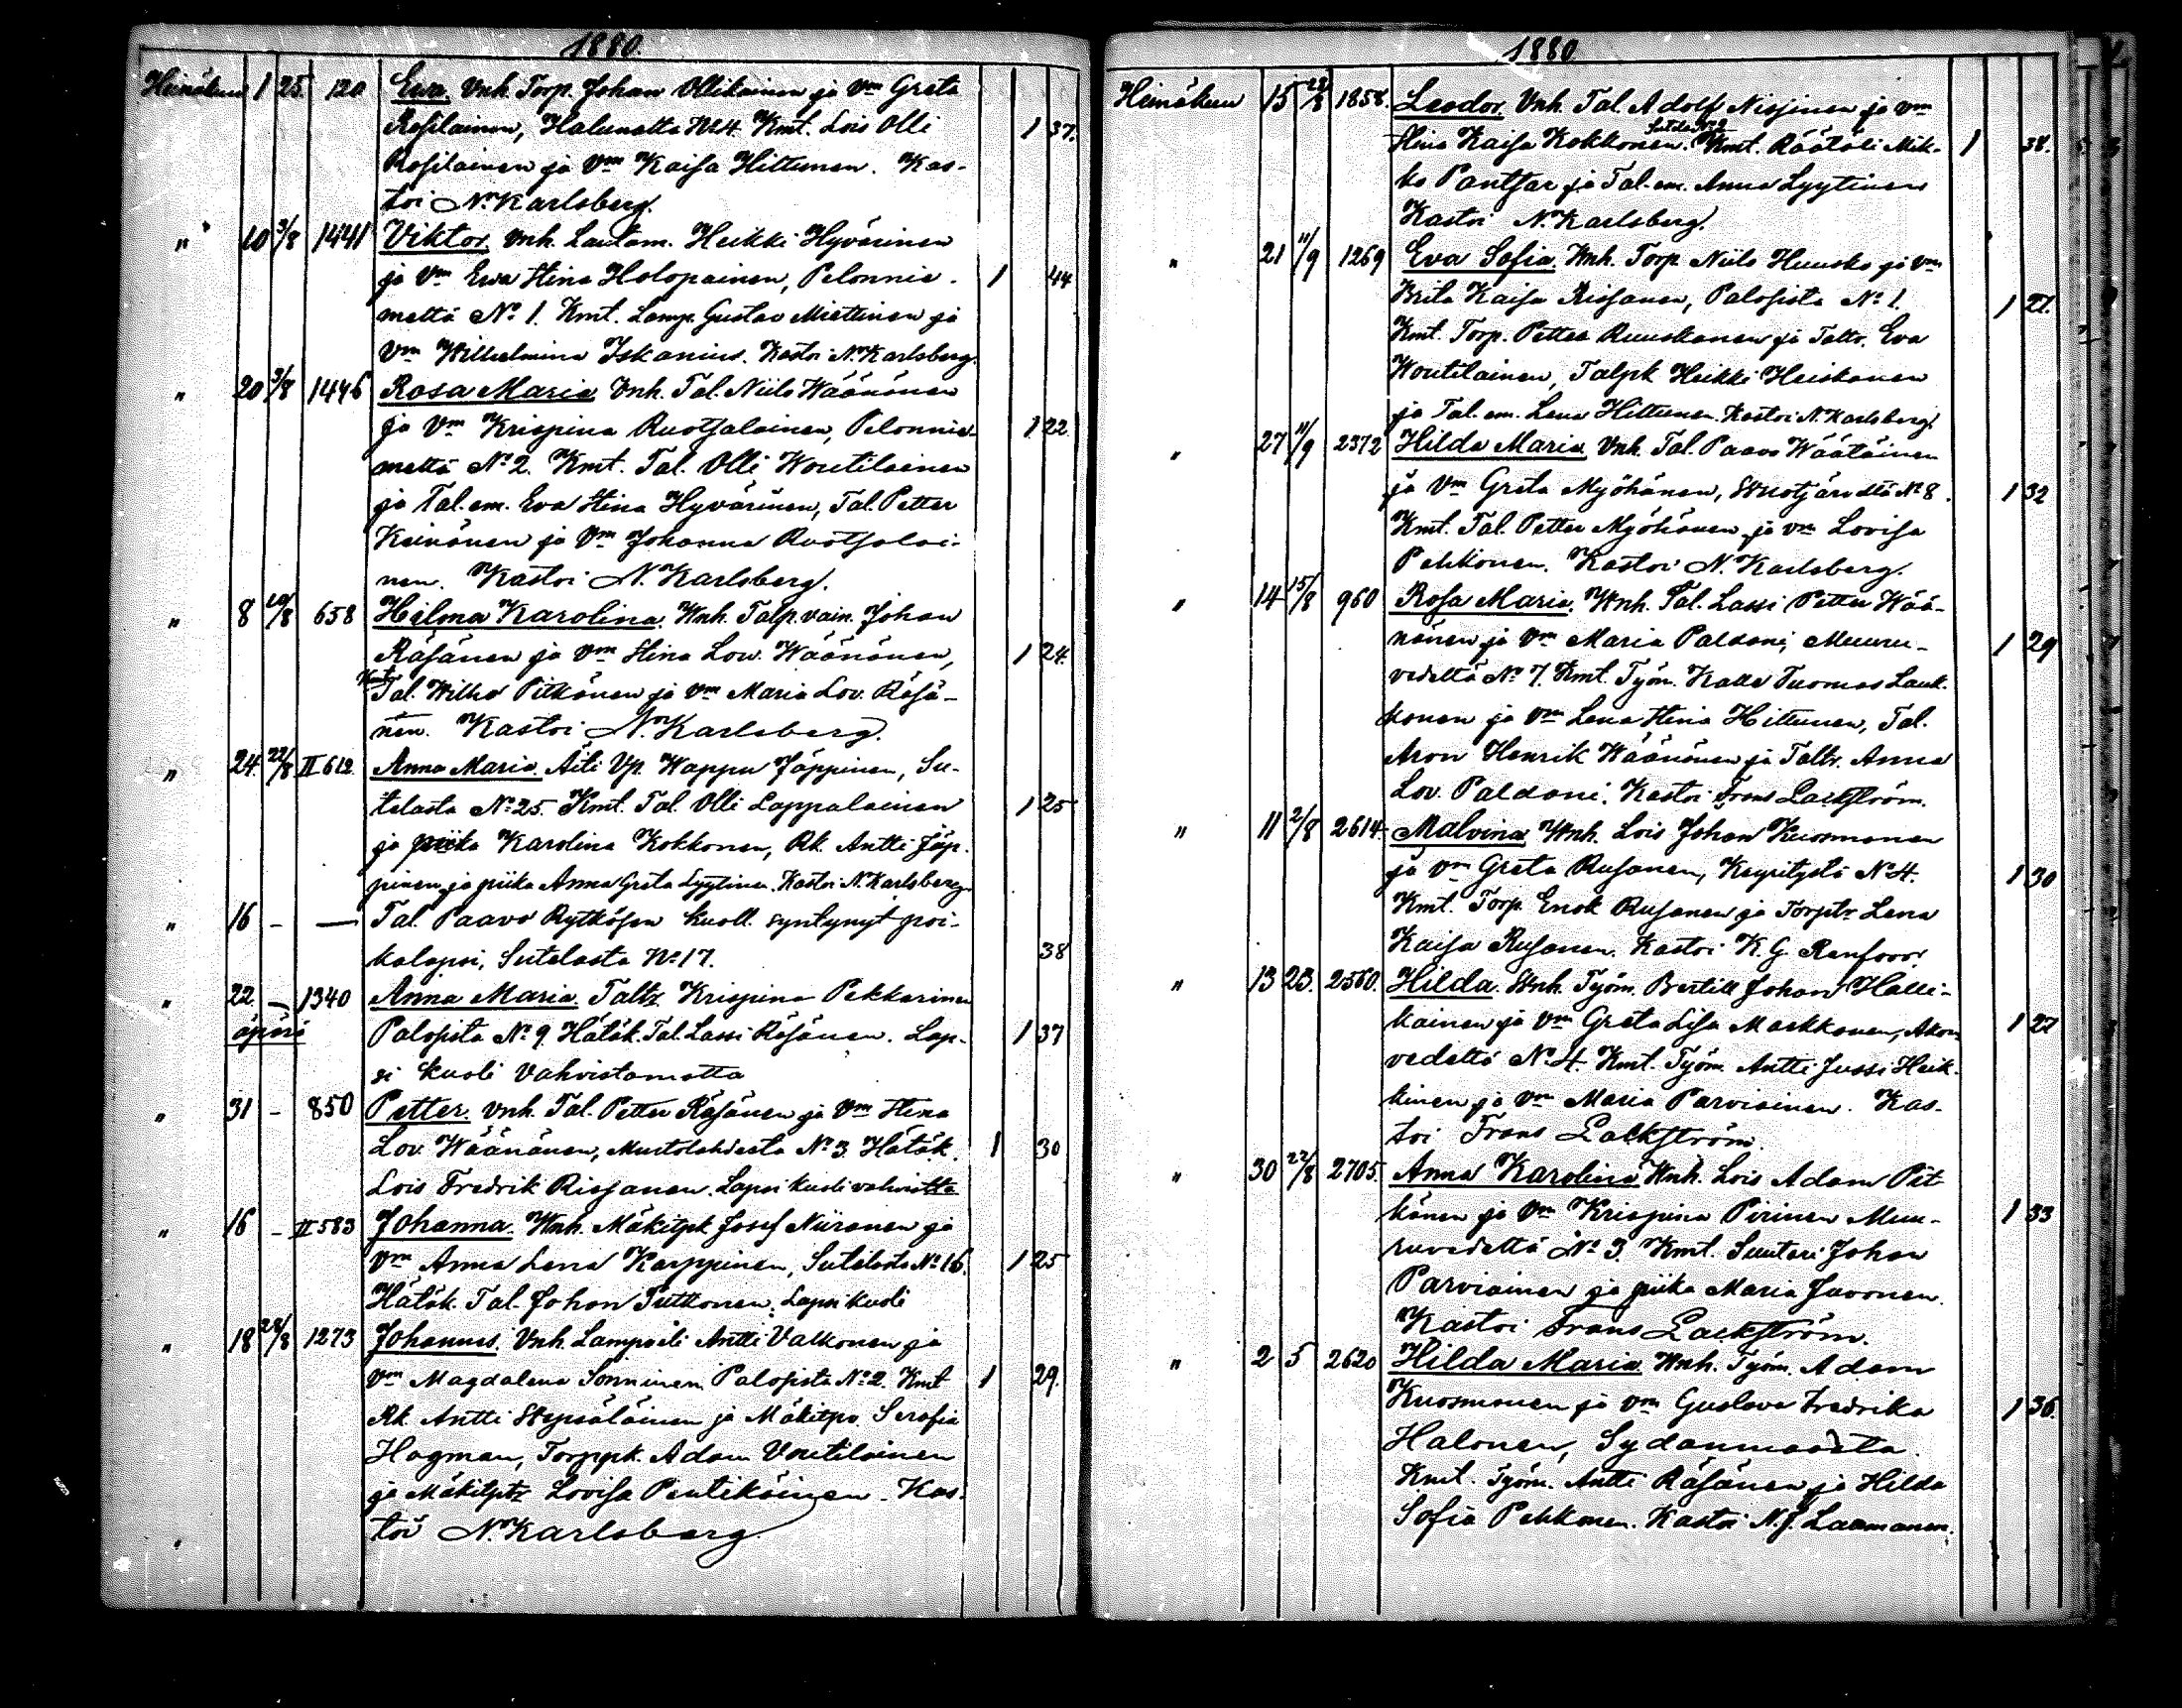 1880.
Heinäkuu 1 25. 120 Ewa. Vnh. Torp. Johan Ollikainen ja Vm Greta
Rosilainen, Halunatta No 4. Kmt. Lois Olli 1 37.
Rosilainen ja Vm Kaisa Hiltunen. Kas-
toi N. Karlsberg.
" 10 3/8 1441 Viktor. Vnh. Lautam. Heikki Hyvärinen
ja Vm Ewa Stina Holopainen, Pelonnie- 1 44
meltä No 1. Kmt. Lamp. Gustav Miettinen ja
Vm Wilhelmina Iskanius. Kastoi N. Karlsberg.
" 20 3/8 1446 Rosa Maria. Vnh. Tal. Niilo Wäänönen
ja Vm Krispina Ruotsalainen, Pelonnie- 1 22
meltä No 2. Kmt. Tal. Olli Woutilainen
ja Tal. em. Eva Stina Hyvärinen, Tal. Petter
Keinönen ja Vm Johanna Ruotsalai-
nen. Kastoi N. Karlsberg.
" 8 10/8 658 Hilma Karolina. Wnh. Talp. vain. Johan
Räsänen ja Vm Stina Low. Wäänönen, 1 24.
Kmt. Tal. Wilho Pitkänen ja Vm Maria Lov. Räsä-
nen. Kastoi N. Karlsberg.
" 24. 22/8 II 612. Anna Maria. Äiti Vp. Wappu Jäppinen, Su-
telasta No 25. Kmt. Tal. Olli Lappalainen 1 25
ja piika Karolina Kokkonen, Rk. Antti Jäp-
pinen ja piika Anna Greta Lyytinen. Kastoi N. Karlsberg.
" 16 - — Tal. Paavo Rytkösen kuoll. syntynyt poi-
kalapsi, Sutelasta No 17. 38
" 22. - 1340 Anna Maria. Taltr. Krispina Pekkarinen
äpärä Palosista No 9. Hätäk. Tal. Lassi Räsänen. Lap- 1 37
si kuoli vahvistamatta
" 31 - 850 Petter. Vnh. Tal. Petter Räsänen ja Vm Stina
Lov. Wäänänen, Mustolahdesta No 3. Hätäk. 1 30
Lois Fredrik Rissanen. Lapsi kuoli vahvistta
" 16 - II 583 Johanna. Wnh. Mäkitpk Josef Niiranen ja
Vm Anna Lena Karppinen, Sutelasta No 16. 1 25
Hätäk. Tal. Johan Tuttonen. Lapsi kuoli
" 18 28/8 1273 Johannes. Vnh. Lampuoti Antti Valkonen ja
Vm Magdalena Sonninen Palosista No 2. Kmt 1 29.
Rk. Antti Wepsäläinen ja Mäkitpv. Serafia
Hagman, Torppk. Adam Voutilainen
ja Mäkitptr Lovisa Pentikäinen. Kas-
toi N. Karlsberg.
1880.
Heinäkuu 15 22/8 1858. Leodor. Vnh. Tal. Adolf Nissinen ja Vm
Stina Kaisa Kokkonen. Sutela No 9 Kmt. Räätäli Mik- 1 38.
ko Pantsar ja Tal. em. Anna Lyytinen
Kastoi N. Karlsberg.
" 21 11/9 1269 Eva Sofia. Wnh. Torp Niilo Huusko ja Vm
Brita Kaisa Rissanen, Palosista No 1. 1 27.
Kmt. Torp. Petter Ruuskanen ja Taltr. Eva
Woutilainen, Talpk Heikki Heiskanen
ja Tal. em. Lena Hiltunen. Kastoi N. Karlsberg.
" 27 11/9 2372 Hilda Maria. Vnh. Tal. Paavo Wäätäinen
ja Vm Greta Myöhänen, Wuotjärveltä No 8. 1 32
Kmt. Tal. Petter Myöhänen ja Vm Lovisa
Pehkonen. Kastoi N. Karlsberg.
" 14 15/8 960 Rosa Maria. Wnh. Tal. Lassi Petter Wää-
nänen ja Vm Maria Paldani, Muuru- 1 29
vedeltä No 7. Kmt. Työm. Kalle Tuomas Lauk-
konen ja Vm Lena Stina Hiltunen, Tal.
Aron Henrik Wäänänen ja Taltr. Anna
Lov. Paldani. Kastoi Frans Lackström.
" 11 2/8 2614. Malvina. Wnh. Lois Johan Kuosmanen
ja Vm Greta Rusanen, Keyritystä No 4. 1 30
Kmt. Torp. Enok Rusanen ja Torptr. Lena
Kaisa Rusanen. Kastoi K. G. Renfors.
" 13 23. 2560. Hilda. Wnh. Työm. Bertill Johan Halli-
kainen ja Vm Greta Lisa Markkanen, Akon- 1 27
vedeltä No 4. Kmt. Työm. Antti Jussi Heik-
kinen ja Vm Maria Parviainen. Kas-
toi Frans Lackström.
" 30 22/8 2705. Anna Karolina. Wnh. Lois Adam Pit-
känen ja Vm Krispina Pirinen Muu- 1 33
ruvedeltä No 3. Kmt. Suutari Johan
Parviainen ja piika Maria Juvonen.
Kastoi Frans Lackström.
" 2 5 2620 Hilda Maria. Wnh. Työm. Adam
Kuosmonen ja Vm Gustava Fredrika 1 36.
Halonen, Sydänmaasta.
Kmt. Työm. Antti Räsänen ja Hilda
Sofia Pehkonen. Kastoi N. J. Laamanen.